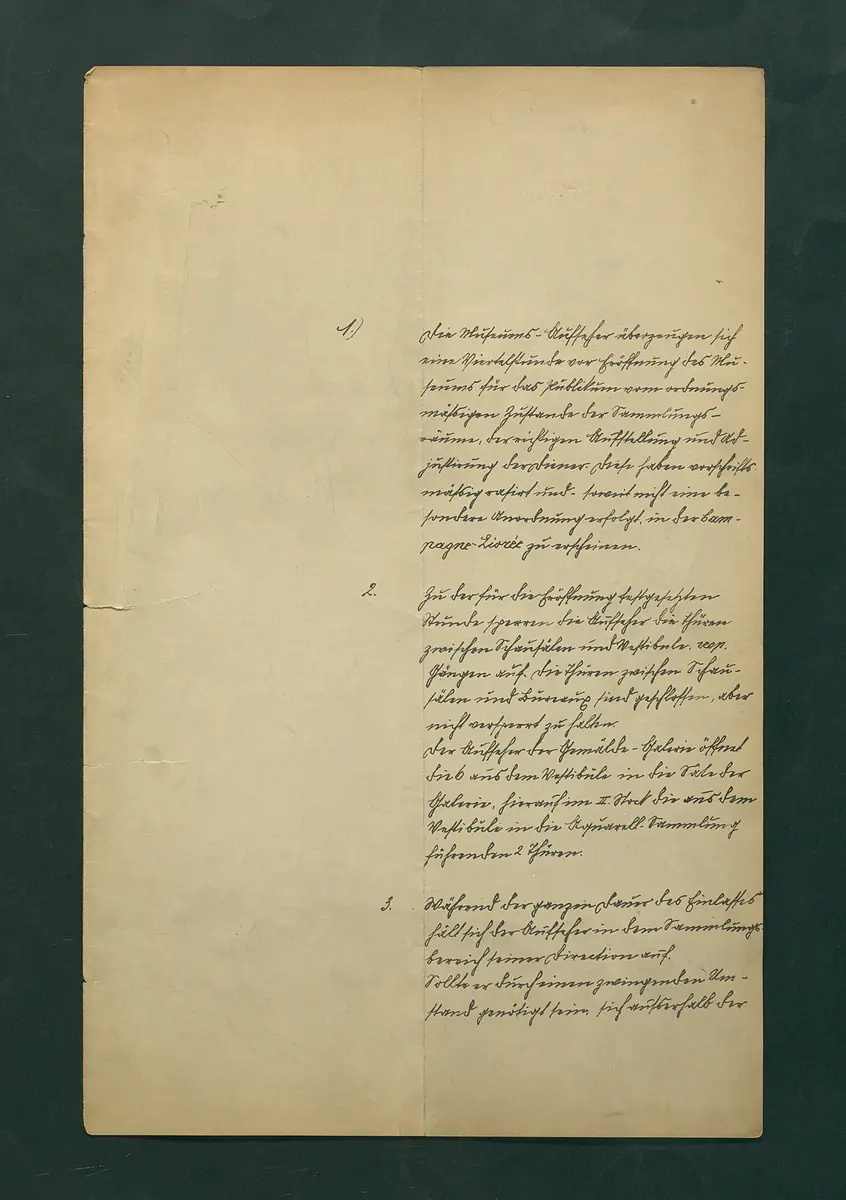 1.)
Die Museums-Aufseher überzeugen sich
eine Viertelstunde vor Eröffnung des Mu-
seums für das Publikum vom ordnungs-
mässigen Zustande der Sammlungs-
räume, der richtigen Aufstellung und Ad-
justirung der Diener. Diese haben vorschrifts
mässig rasirt und - soweit nicht eine be-
sondere Anordnung erfolgt, in der Cam-
pagne-Livrée zu erscheinen.
2.
Zu der für die Eröffnung festgesetzten
Stunde sperren die Aufseher die Thüren
zwischen Schausälen und Vestibule, resp.
Gängen auf. Die Thüren zwischen Schau-
sälen und Bureaux sind geschlossen, aber
nicht versperrt zu halten.
Der Aufseher der Gemälde-Galerie öffnet
die 6 aus dem Vestibule in die Säle der
Galerie, hierauf im II. Stock die aus dem
Vestibule in die Aquarell-Sammlung
führenden 2 Thüren.
3.
Während der ganzen Dauer des Einlasses
hält sich der Aufseher in dem Sammlungs-
bereich seiner Direction auf.
Sollte er durch einen zwingenden Um-
stand genötigt sein, sich ausserhalb der